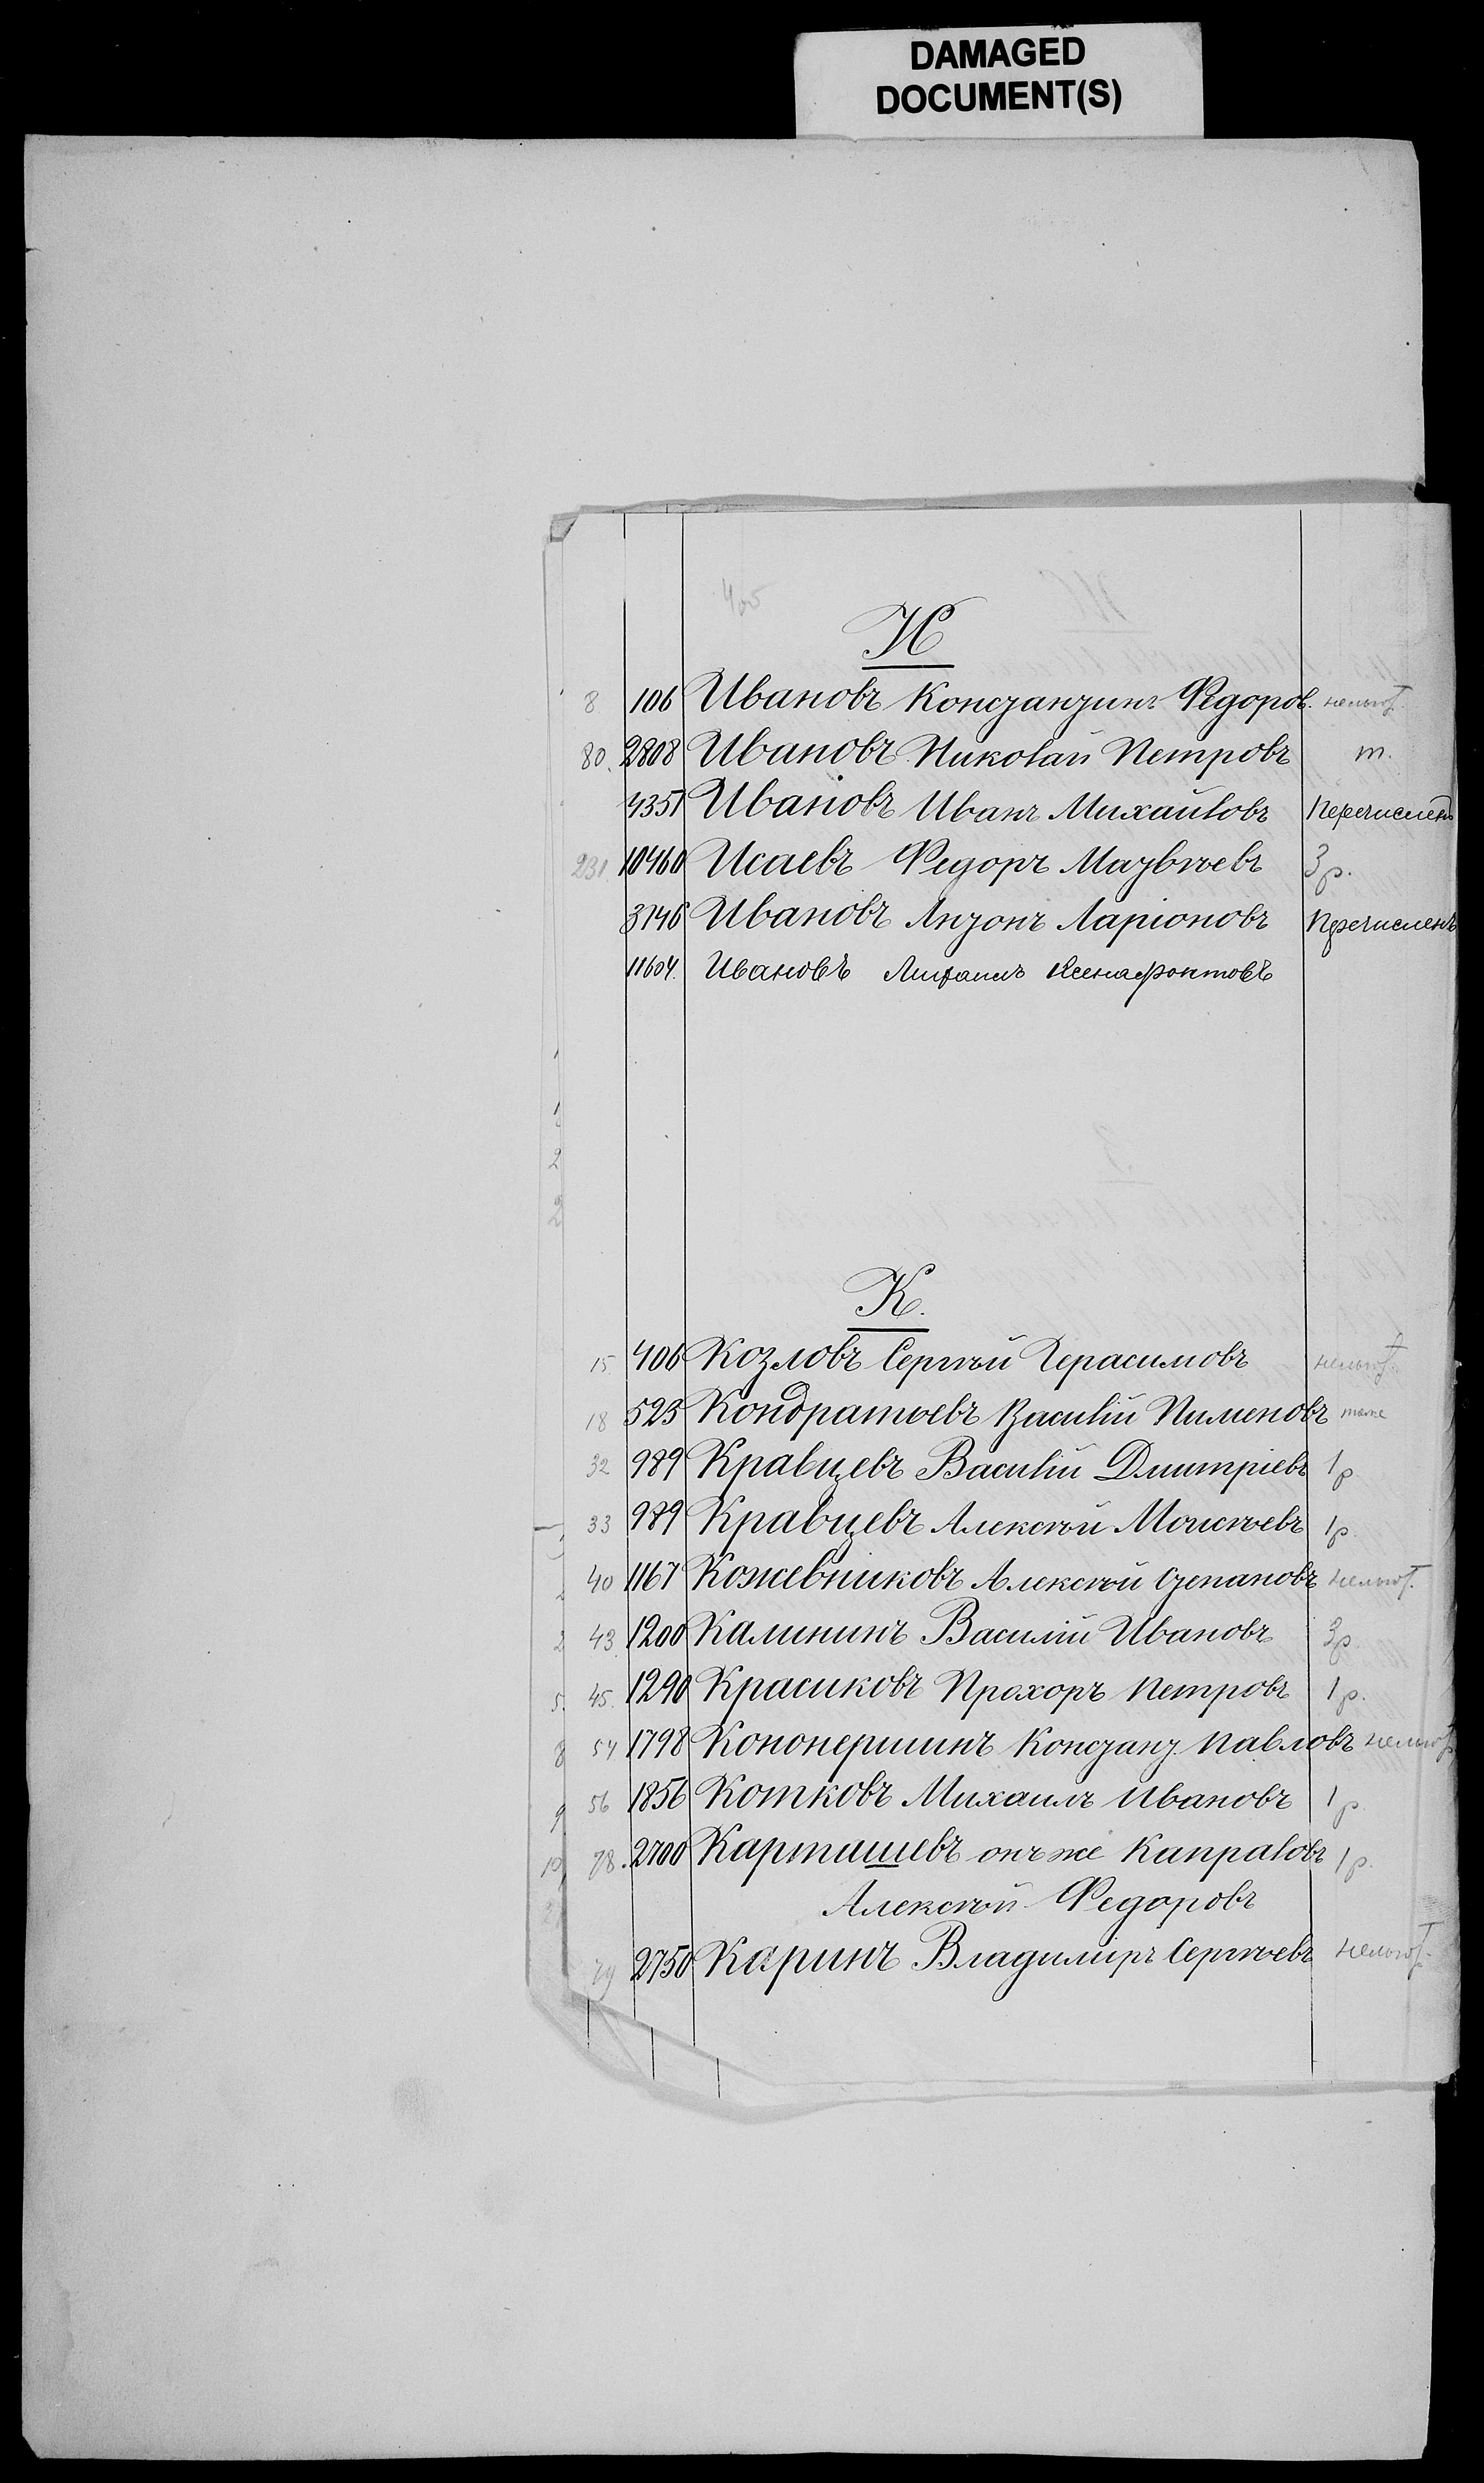 DAMAGED
DOCUMENT(S)
И
8 106 Ивановъ Константинъ Федоров. нельгот.
80. 2808 Ивановъ Николай Петровъ т.
4351 Ивановъ Иванъ Михайловъ Перечисленъ
231. 10460 Исаевъ Федоръ Матвѣевъ 3 р.
3746 Ивановъ Антонъ Ларіоновъ Перечисленъ
11604. Ивановъ Ксенафонтовъ
К.
15 406 Козловъ Сергѣй Герасимовъ нельгот.
18 523 Кондратьевъ Василій Пименовъ тоже
32 989 Кравцевъ Василій Дмитріевъ 1 р
33 989 Кравцевъ Алексѣй Моисѣевъ 1 р.
40 1167 Кожевниковъ Алексѣй Степановъ нельгот.
43. 1200 Калининъ Василій Ивановъ 3 р.
45. 1290 Красиковъ Прохоръ Петровъ 1 р.
54 1798 Кононершинъ Констант. Павловъ нельгот.
56 1856 Котковъ Михаилъ Ивановъ 1 р
78. 2700 Карташевъ онъ же Капраловъ 1 р.
Алексѣй Федоровъ
79 2750 Каринъ Владиміръ Сергѣевъ нельгот.